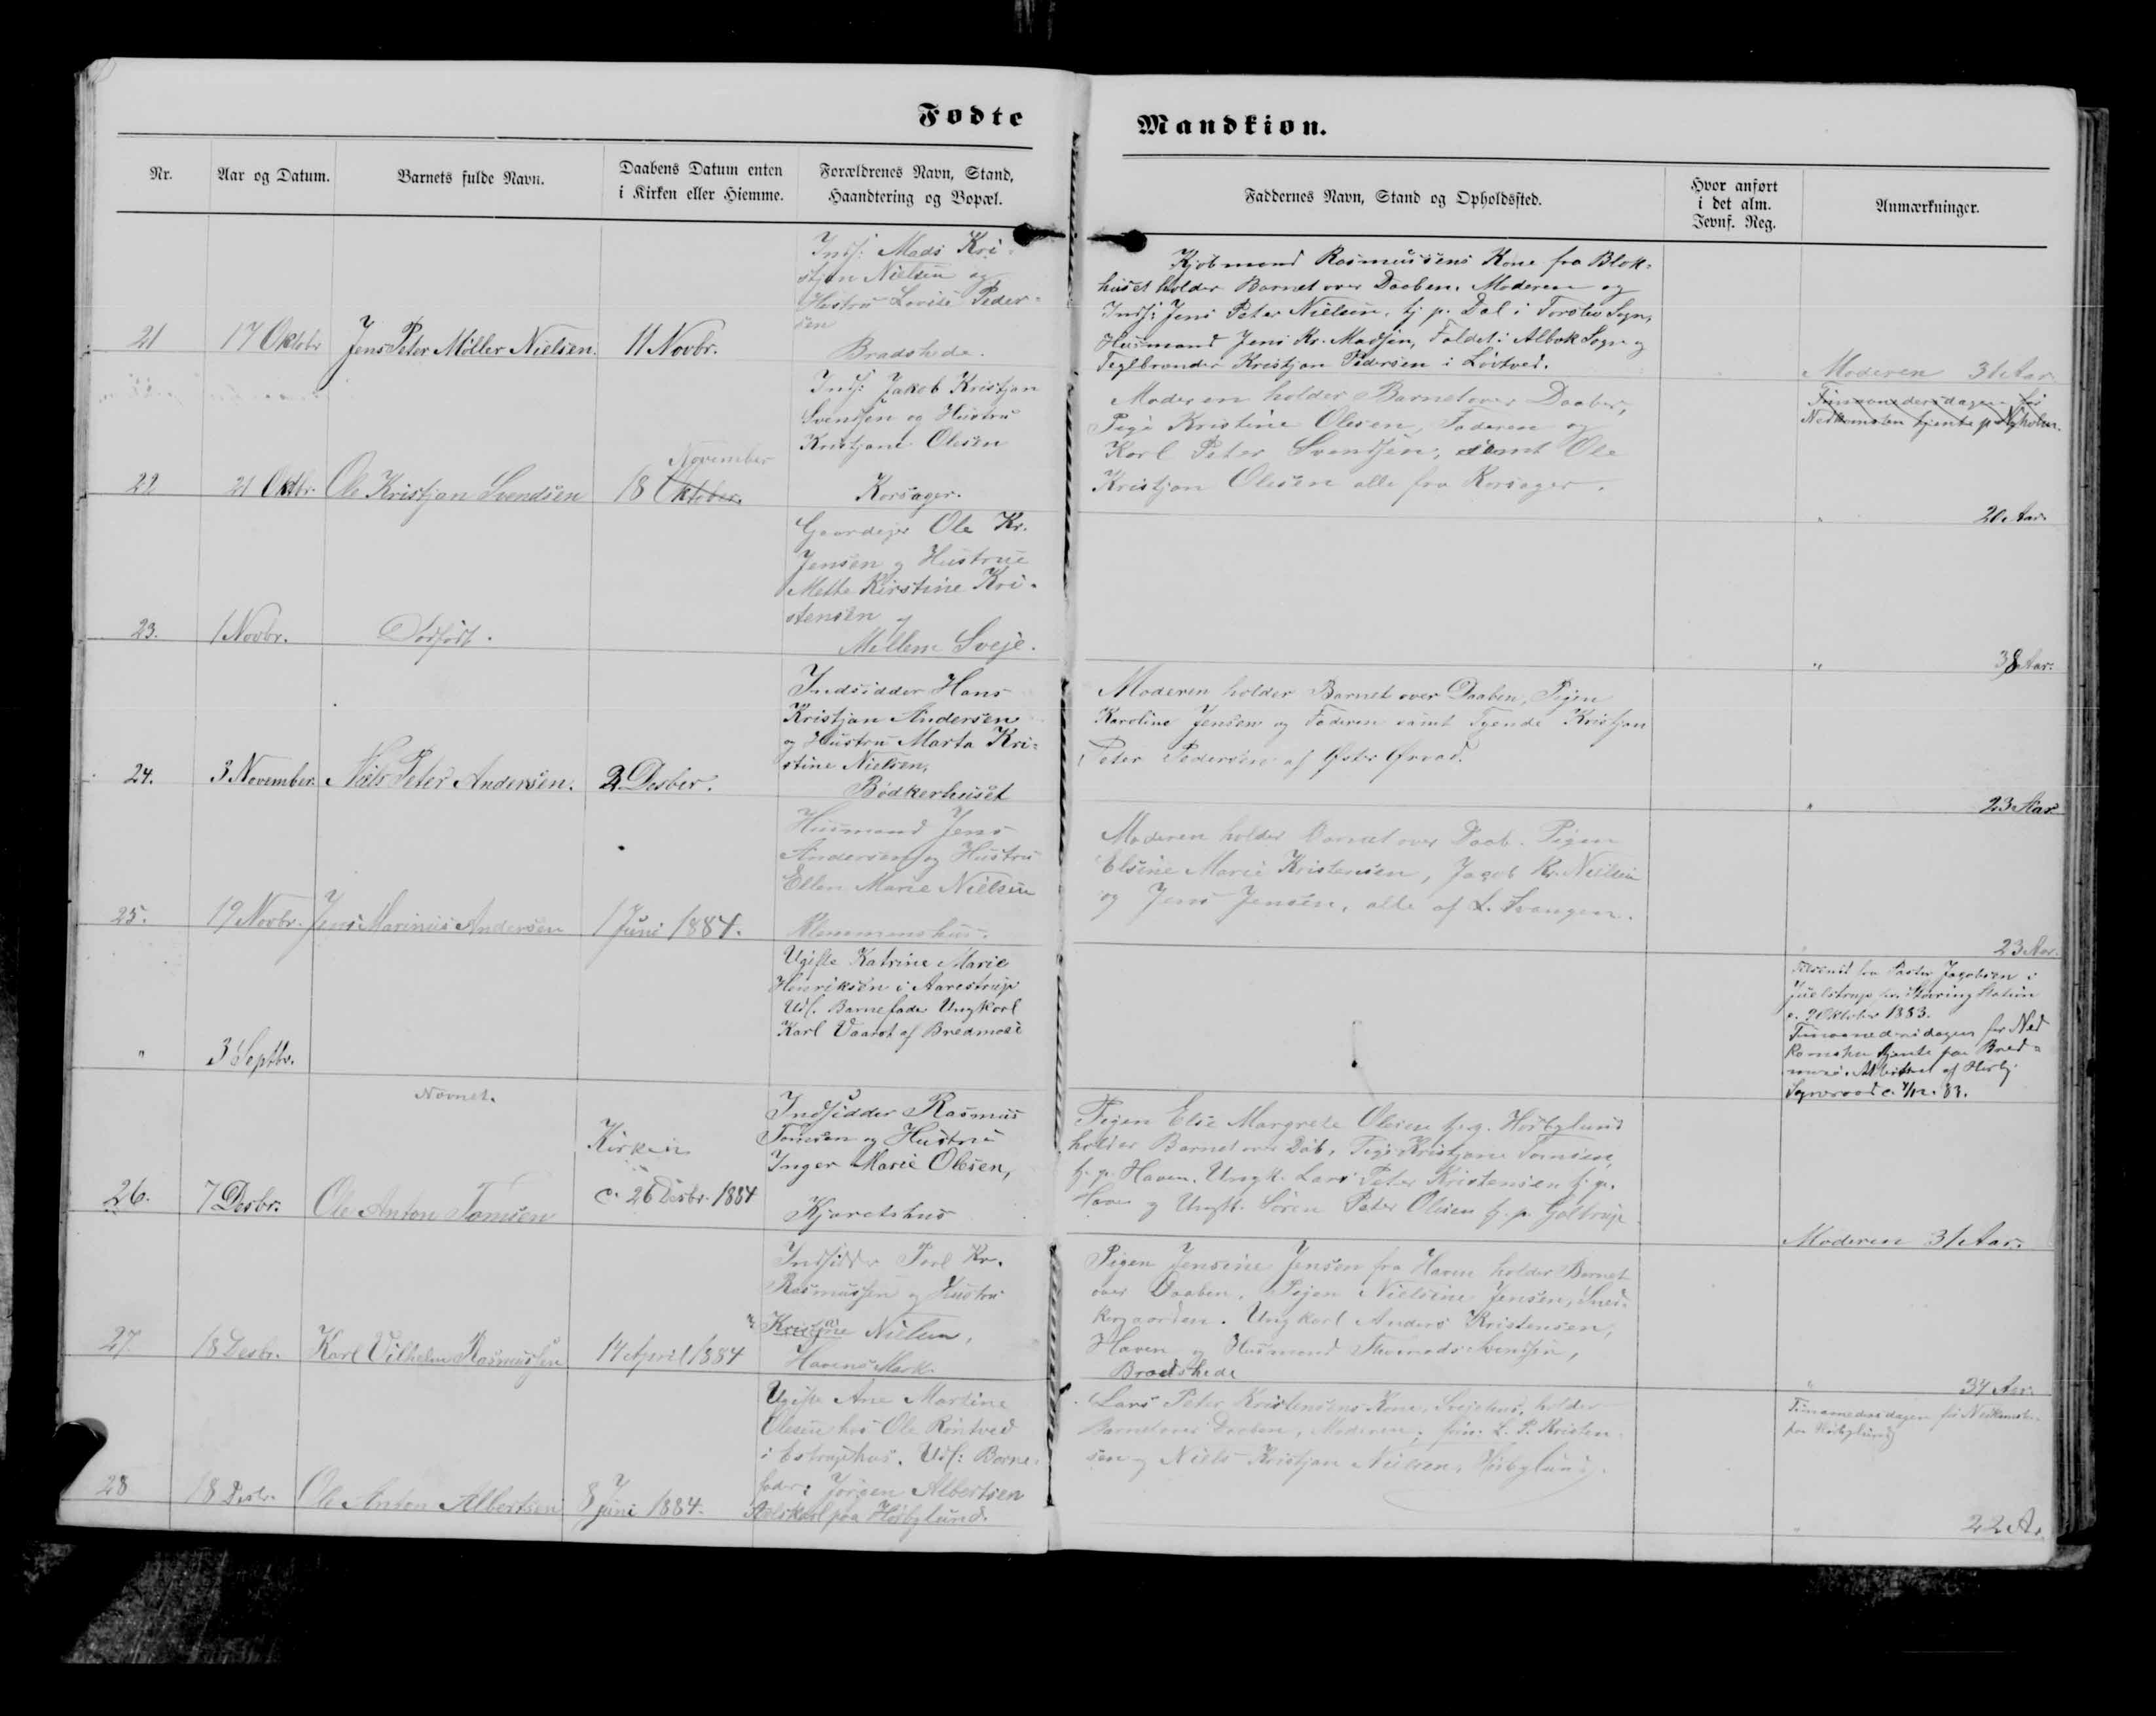 Fødte
Mandkiøn.
Nr.
Aar og Datum.
Barnets fulde Navn.
Daabens Datum enten
i Kirken eller Hiemme.
Forældrenes Navn, Stand,
Haandtering og Bopæl.
Faddernes Navn, Stand og Opholdssted.
Hvor anført
i det alm.
Jevnf. Reg.
Anmærkninger.
21
17 Oktobr
Jens Peter Möller Nielsen.
11 Novbr.
Inds: Mads Kri-
stjan Nielsen og
Hustru Lovise Peder-
sen
Bradshede.
Kjöbmand Rasmussens Kone fra Blok-
huset holder Barnet over Daaben. Moderen og
Inds: Jens Peter Nielsen, tj. p. Dal i Torslev Sogn,
Husmand Jens Kr. Madsen, Faldet i Albæk Sogn og
Teglbrænder Kristjan Pedersen i Lövtved.
Moderen 31 Aar
22
21 Oktbr.
Ole Kristjan Svendsen
November
18 Oktober.
Inds: Jakob Kristjan
Svendsen og Hustru
Kristjane Olesen
Korsager.
Moderen holder Barnet over Daaben,
Pige Kristine Olesen, Faderen og
Karl Peter Svendsen, samt Ole
Kristjan Olesen alle fra Korsager.
Timaanedersdagen för
Nedkomsten tjente p. Nyholm.
" 20 Aar.
23.
1 Novbr.
Dødfødt.
Gaardejer Ole Kr.
Jensen og Hustrue
Mette Kirstine Kri-
stensen
Mellem Sveje.
" 38 Aar.
24.
3 November.
Niels Peter Andersen.
2 Desber.
Indsidder Hans
Kristjan Andersen
og Hustru Marta Kri-
stine Nielsen,
Bödkerhuset
Moderen holder Barnet over Daaben, Pigen
Karoline Jensen og Faderen samt Tyende Kristjan
Peter Pedersen af Øster
" 23 Aar
25.
19 Novbr.
Jens Marinus Andersen
1 Juni 1884.
Husmand Jens
Andersen og Hustru
Ellen Marie Nielsen
Klemmenshus.
Moderen holder Barnet over Daab. Pigen
Elsine Marie Kristensen, Jacob Kr. Nielsen
og Jens Jensen, alle af L. Svangen.
" 23 Aar.
"
3 Septbr.
Ugifte Katrine Marie
Henriksen i Aarestrup
Udl. Barnefader Ungkarl
Karl Vaarst af Bredmose
Tilsendt fra Pastor Jagobsen i
Juelstrup pr. Störing Station
d. 9 Oktober 1883.
Timaanedersdagen før Ned
komsten tjente paa Bred-
mose. Attesteret af Hörby
Sogneraad d. 4/12. 83.
26.
7 Desbr.
Navnet.
Ole Anton Tomsen
Kirken
d. 26 Desbr. 1884
Indsidder Rasmus
Tomsen og Hustru
Inger Marie Olesen,
Kjæretshus
Pigen Else Margrete Olesen tj. p. Hörbylund
holder Barnet over Daab, Pige Kristjane Tomsen,
tj. p. Haven. Ungk. Lars Peter Kristensen tj. p.
Haven og Ungk. Sören Peter Olesen tj. p. Goltrup
Moderen 31 Aar.
27.
18 Desbr.
Karl Vilhelm Rasmussen
14 April 1884
Indsidder Povl Kr.
Rasmussen og Hustru
Kristjane Nielsen,
Havens Mark
Pigen Jensine Jensen fra Haven holder Barnet
over Daaben. Pigen Nielsine Jensen, Sned-
kergaarden. Ungkarl Anders Kristensen,
Haven og Husmand Thomads Svendsen,
Bradshede
" 34 Aar.
28
18 Desbr.
Ole Anton Albertsen
8 Juni 1884.
Ugifte Ane Martine
Olesen hos Ole Röntved
i Estruphus. Udl: Barne-
fader: Jörgen Albertsen
Avlskarl paa Hörbylund.
Lars Peter Kristensens Kone, Svejshus, holder
Barnet over Daaben, Moderen, L. P. Kristen-
sen og Niels Kristjan Nielsen, Hörbylund.
Timaanedersdagen för Nedkomsten
paa Hörbylund
" 22 A.